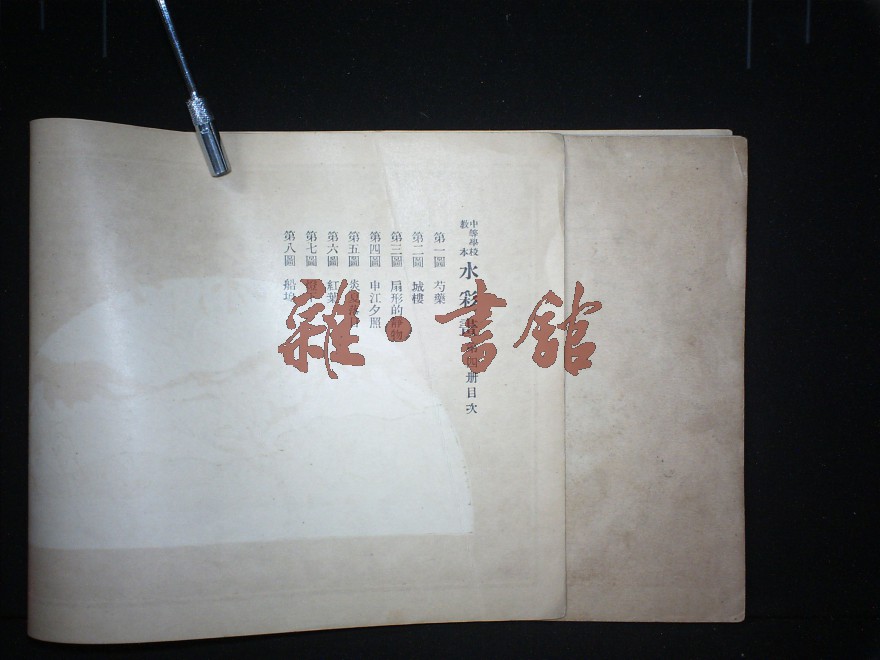 中等學校
教本
水彩畫第四册目次
第一圖 芍藥
第二圖 城樓
第三圖 扇形的靜物
第四圖 申江夕照
第五圖
第六圖 紅葉
第七圖
第八圖 船塢
雜·書館